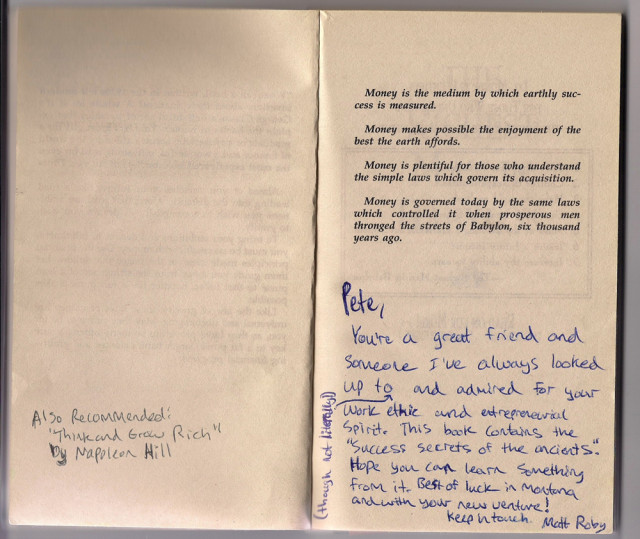 Also Recommended:
"Think and Grow Rich"
by Napoleon Hill
Money is the medium by which earthly suc-
cess is measured.
Money makes possible the enjoyment of the
best the earth affords.
Money is plentiful for those who understand
the simple laws which govern its acquisition.
Money is governed today by the same laws
which controlled it when prosperous men
thronged the streets of Babylon, six thousand
years ago.
Pete,
You're a great friend and
someone I've always looked
up to and admired for your
(though not literally!)
work ethic and entrepreneurial
spirit. This book contains the
"Success secrets of the ancients".
Hope you can learn something
from it. Best of luck in Montana
and with your new venture!
Keep in touch. Matt Roby